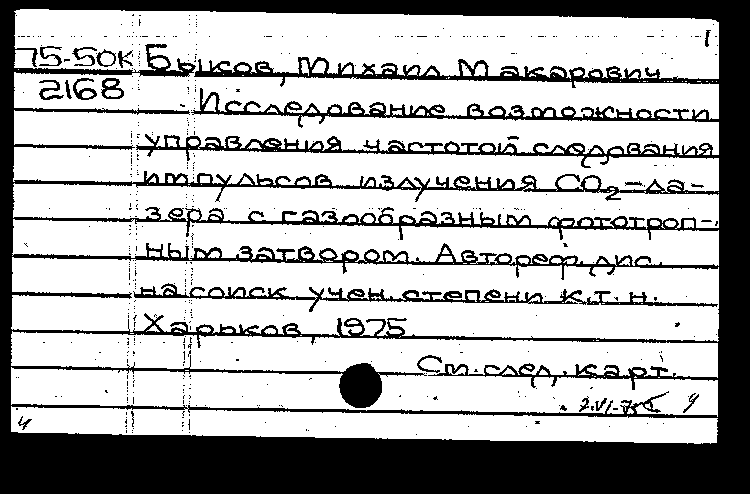 1
75-50К Быков, Михаил Макарович
2168 Исследование возможности
управления частотой следования
импульсов излучения CO2-ла-
зера с газообразным фототроп-
ным затвором. Автореф. дис.
на соиск учен. степени к.т.н.
Харьков, 1975
См. след. карт.
ч